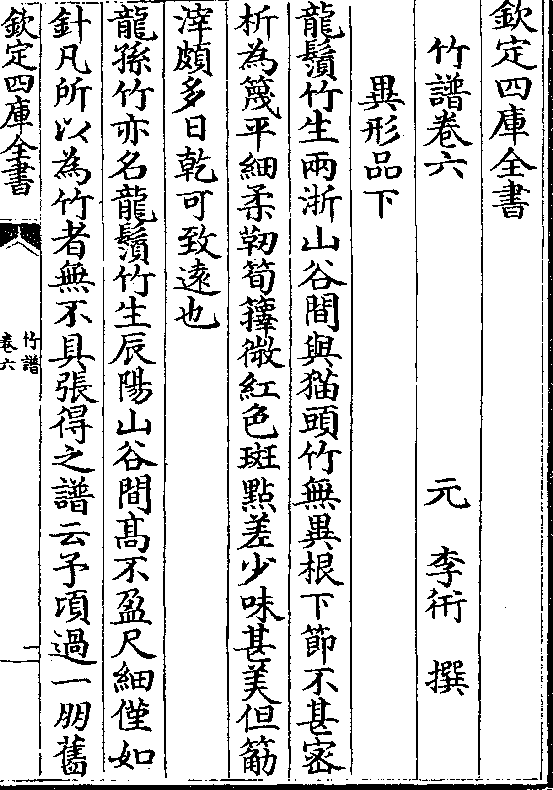 欽定四庫全書
竹譜卷六
元　李衎　撰
異形品下
龍鬚竹生兩浙山谷間與猫頭竹無異根下節不甚密
析為篾平細柔靭筍籜微紅色斑點差少味甚美但筯
滓頗多日乾可致逺也
龍孫竹亦名龍鬚竹生辰陽山谷間髙不盈尺細僅如
針凡所以為竹者無不具張得之譜云予頃過一朋舊
欽定四庫全書
竹譜
卷六
二